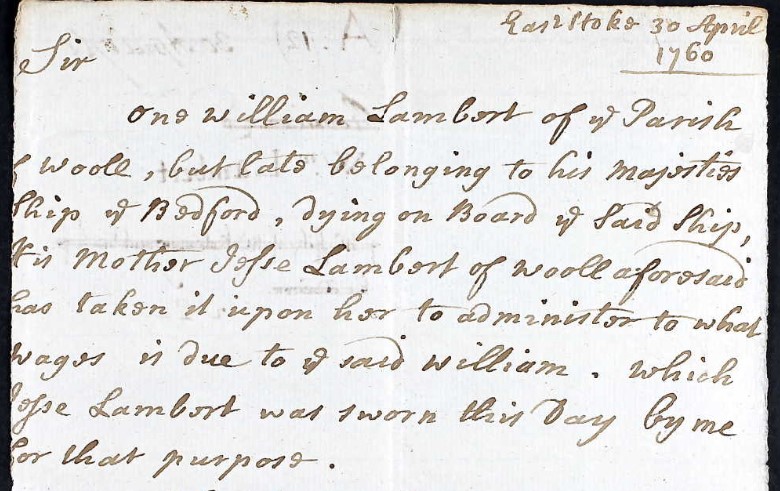 East Stoke 30 April
1760
Sir
One william Lambert of ye Parish
of wooll, but late belonging to his Majesties
Ship ye Bedford, dying on Board ye Said Ship,
His Mother Jesse Lambert of wooll aforesaid
has taken it upon her to administer to what
wages is due to ye said william. which
Jesse Lambert was sworn this Day by me
for that purpose.